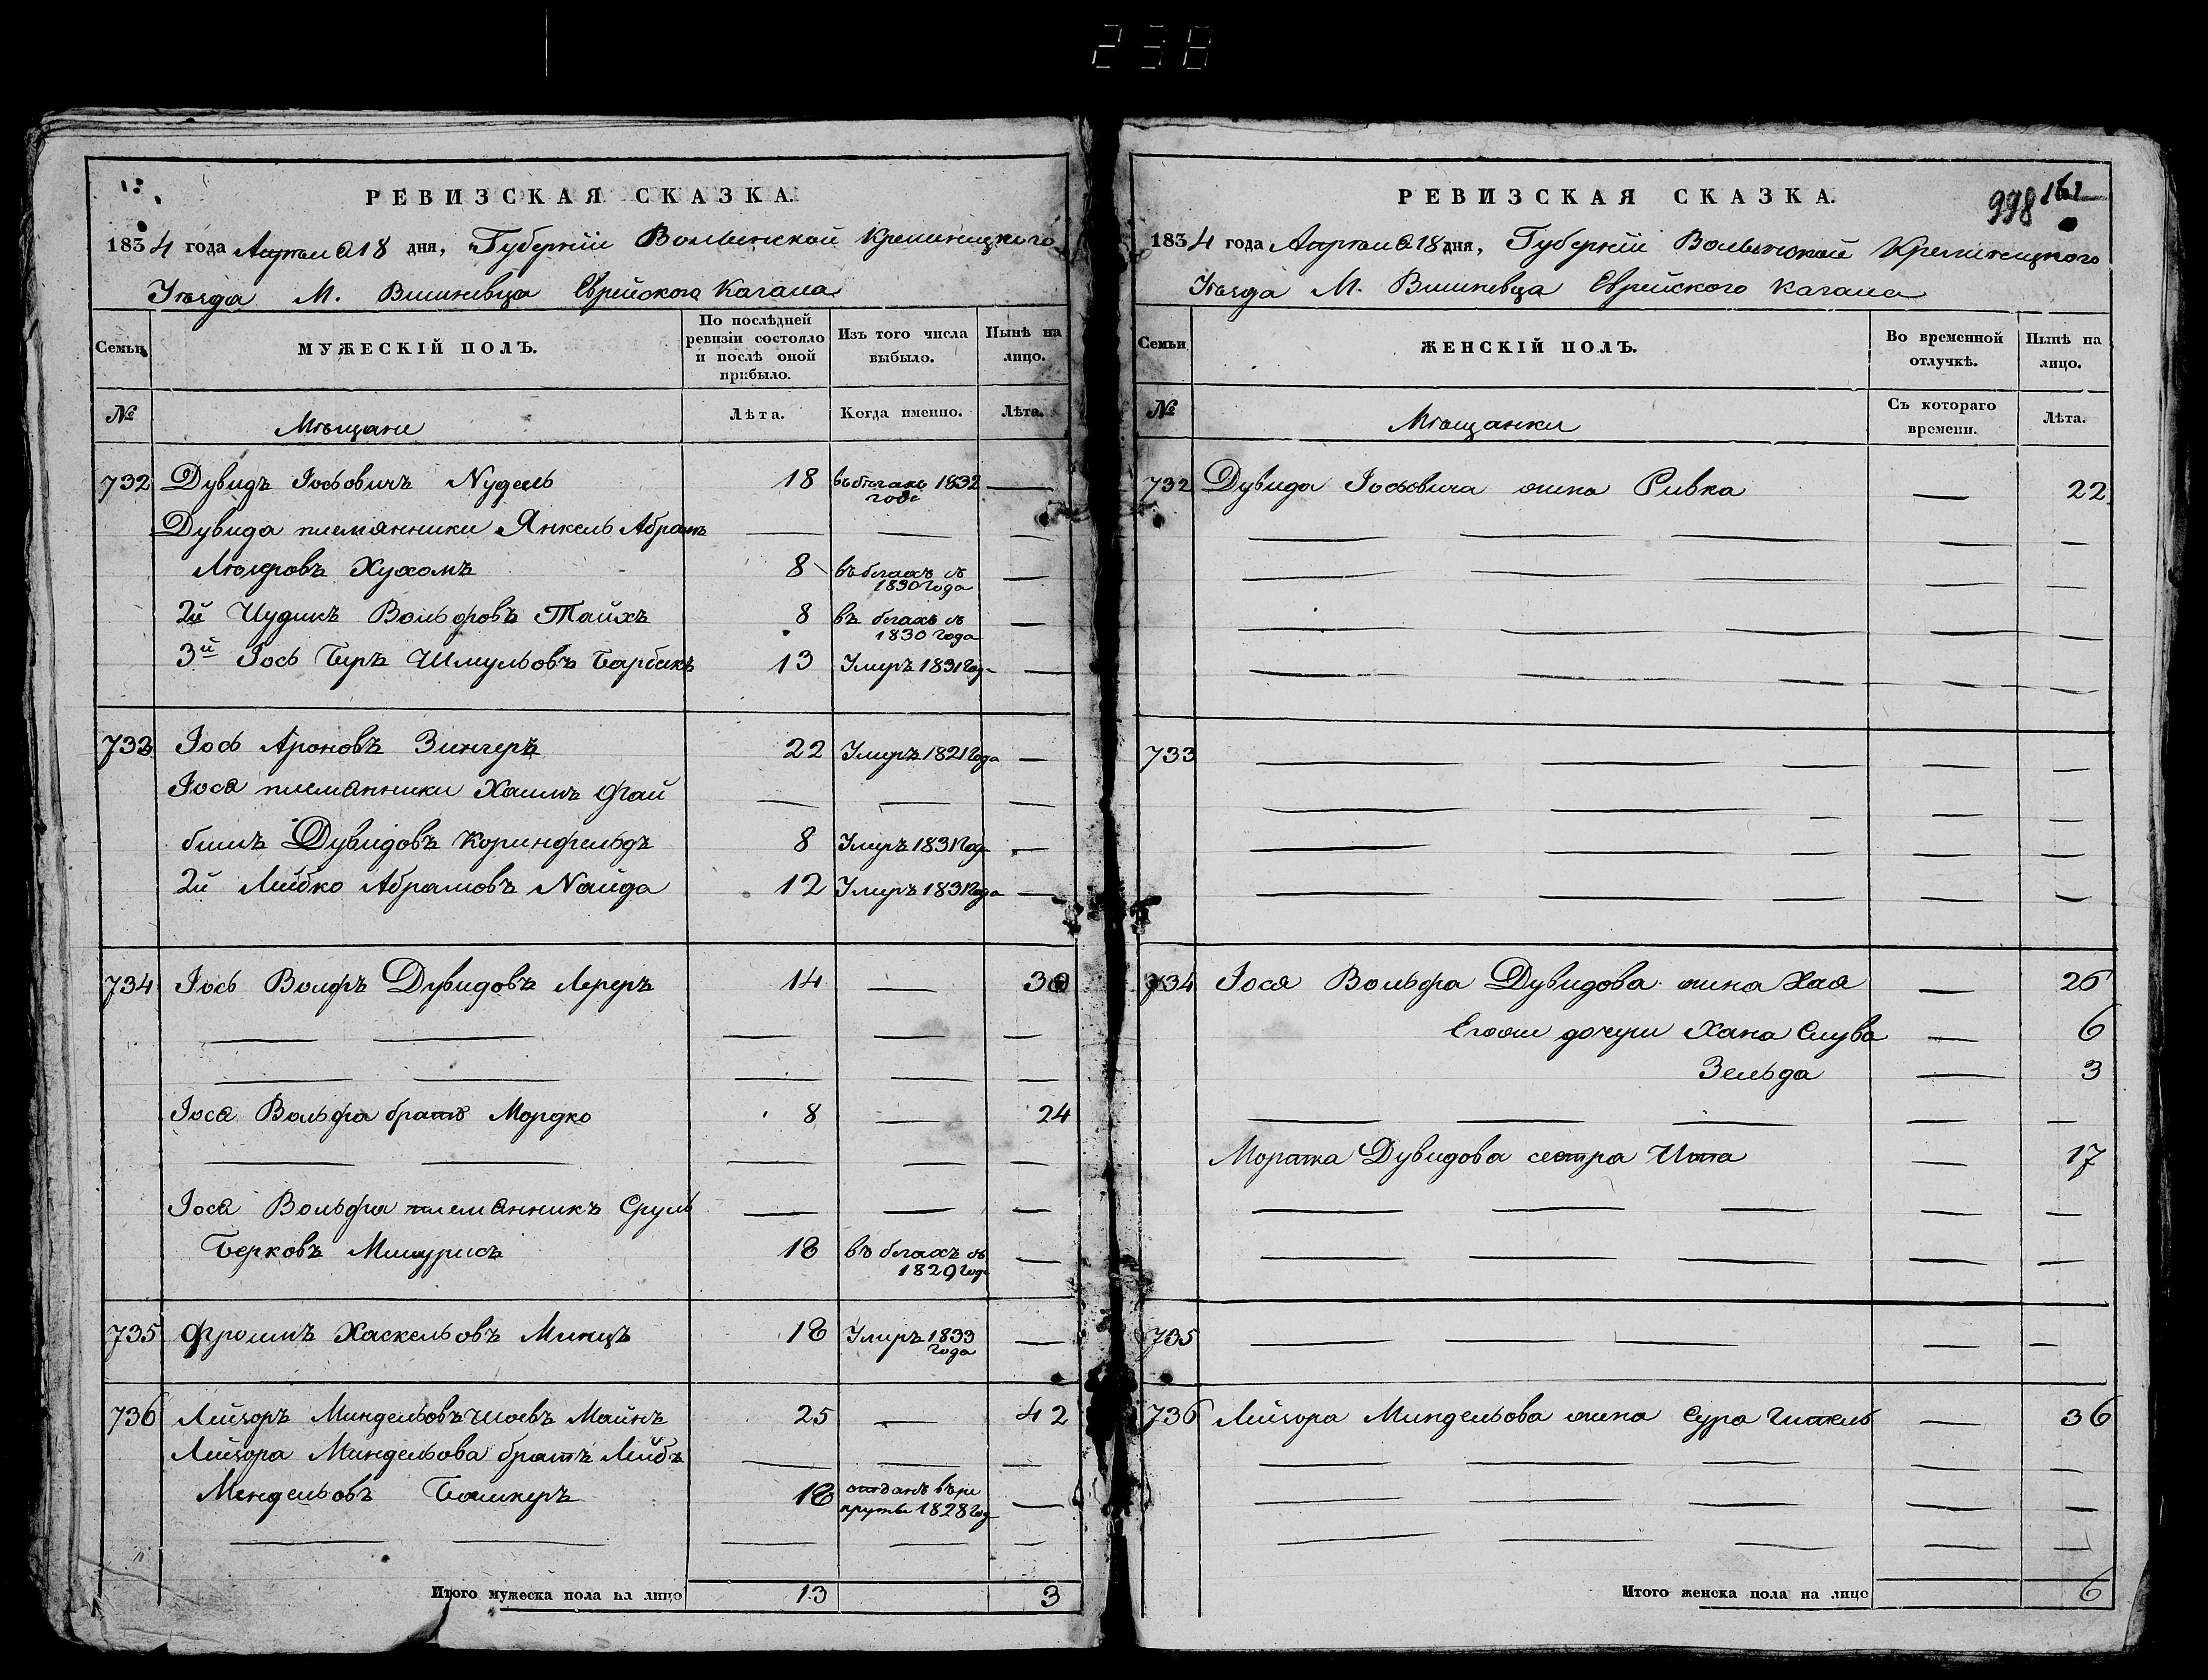 238
РЕВИЗСКАЯ СКАЗКА.
1834 года Апреля 18 дня, Губернiи Волынской Кременецкого
Уѣзда М. Вишневца Еврейского Кагала
Семьи
МУЖЕСКIЙ ПОЛЪ.
По послѣдней ревизiи состояло и послѣ оной прибыло.
Изъ того числа выбыло.
Нынѣ на лицо.
№
Мѣщане
Лѣта.
Когда именно.
Лѣта.
732 Дувидъ Iосьовичъ Нудель 18 въ бѣгахъ 1832 годе —
Дувида племянники Янкель Абрамъ — — —
Мееровъ Хухомъ 8 въ бегахъ съ 1830 Года —
2й Иудикъ Вольфовъ Тайхъ 8 въ бегахъ съ 1830 Года —
3й Iось Беръ Шмульовъ Барбакъ 13 Умеръ 1831 Год —
733 Iось Ароновъ Зингеръ 22 Умеръ 1821 Года —
Iося племянники Хаимъ Фай — — —
бишъ Дувидовъ Коринфельдъ 8 Умеръ 1831 Год —
2й Лейбко Абрамовъ Найда 12 Умеръ 1831 Года —
734 Iось Волфъ Дувидовъ Лереръ 14 — 30
— — — — —
— — — — —
Iося Вольфа братъ Мордко 8 — 24
— — — — —
Iося Вольфа племянникъ Сруль — — —
Берковъ Мишурисъ 18 въ бегахъ съ 1829 Года —
735 Фроимъ Хаскельовъ Минцъ 18 Умеръ 1833 Года —
736 Лейзоръ Миндельовъ Майнъ 25 — 42
Лейзора Миндельова братъ Лейбъ — — —
Мендельовъ 18 отданъ въ ре круты 1828 Год —
— — — — —
Итого мужеска пола на лицо 13 3
РЕВИЗСКАЯ СКАЗКА.
998 162
1834 года Апреля 18 дня, Губернiи Волынской Кременецкого
Уѣзда М. Вишневца Еврейского Кагала
Семьи
ЖЕНСКIЙ ПОЛЪ.
Во временной отлучкѣ.
Нынѣ на лицо.
№
Мѣщанки
Съ котораго времени.
Лѣта.
732 Дувида Iосьовича жена Ривка — 22
— — — — —
— — — — —
— — — — —
— — — — —
733 — — — — —
— — — — —
— — — — —
— — — — —
734 Iося Вольфа Дувидова жена Хая — 26
Егоже дочери Хана Слува — 6
Зельда — 3
— — — — —
Мортка Дувидова сестра Ита — 17
— — — — —
— — — — —
735 — — — — —
736 Лейзора Миндельова жена Сура Гитель — 36
— — — — —
— — — — —
— — — — —
Итого женска пола на лицо 6